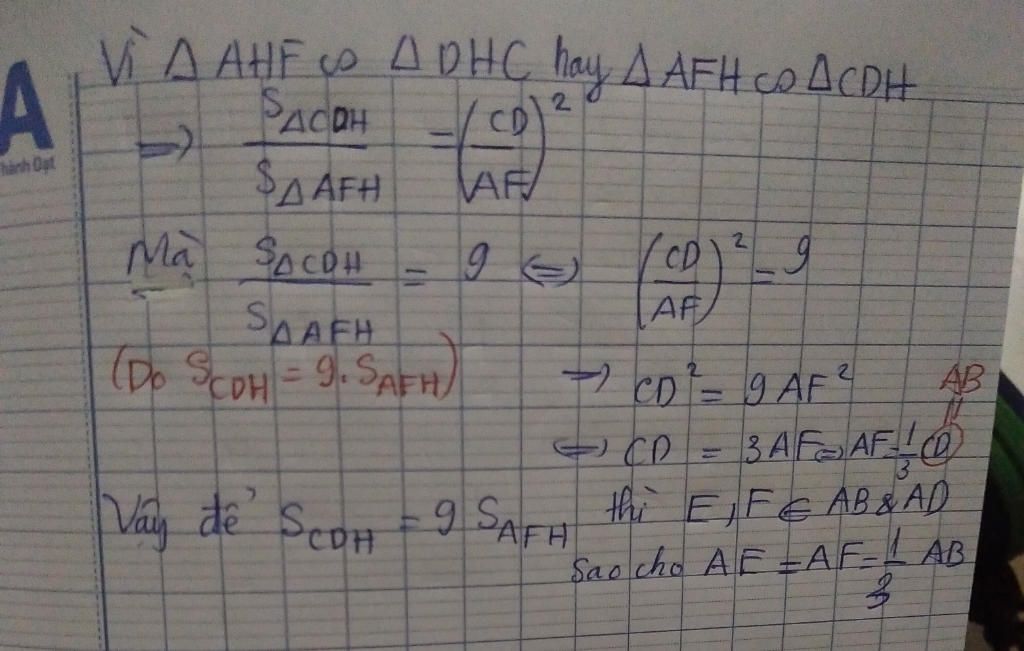 Vì Δ AHF ∽ Δ DHC hay Δ AFH ∽ Δ CDH
⇒ SΔCDH / SΔAFH = (CD/AF)²
Mà SΔCDH / SΔAFH = 9 ⇔ (CD/AF)² = 9
(Do SCDH = 9. SAFH) ⇒ CD² = 9 AF² AB
⇔ CD = 3AF ⇒ AF = 1/3 CD
Vậy để SCDH = 9 SAFH thì E, F ∈ AB & AD
Sao cho AE = AF = 1/3 AB
A
Thành Đạt